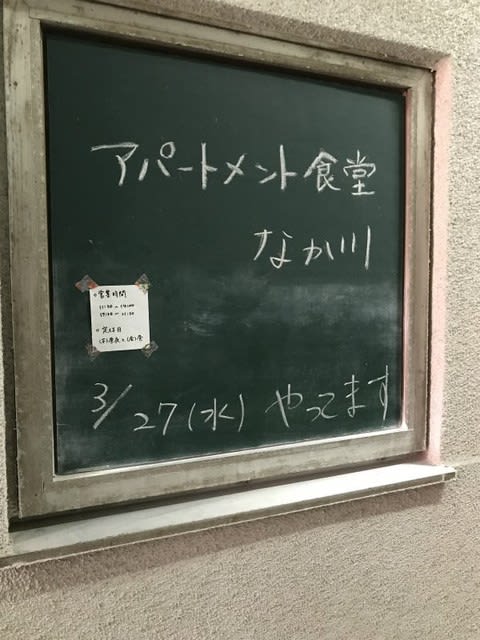 アパートメント食堂
なか川
○営業時間
○定休日
3/27(水) やってます